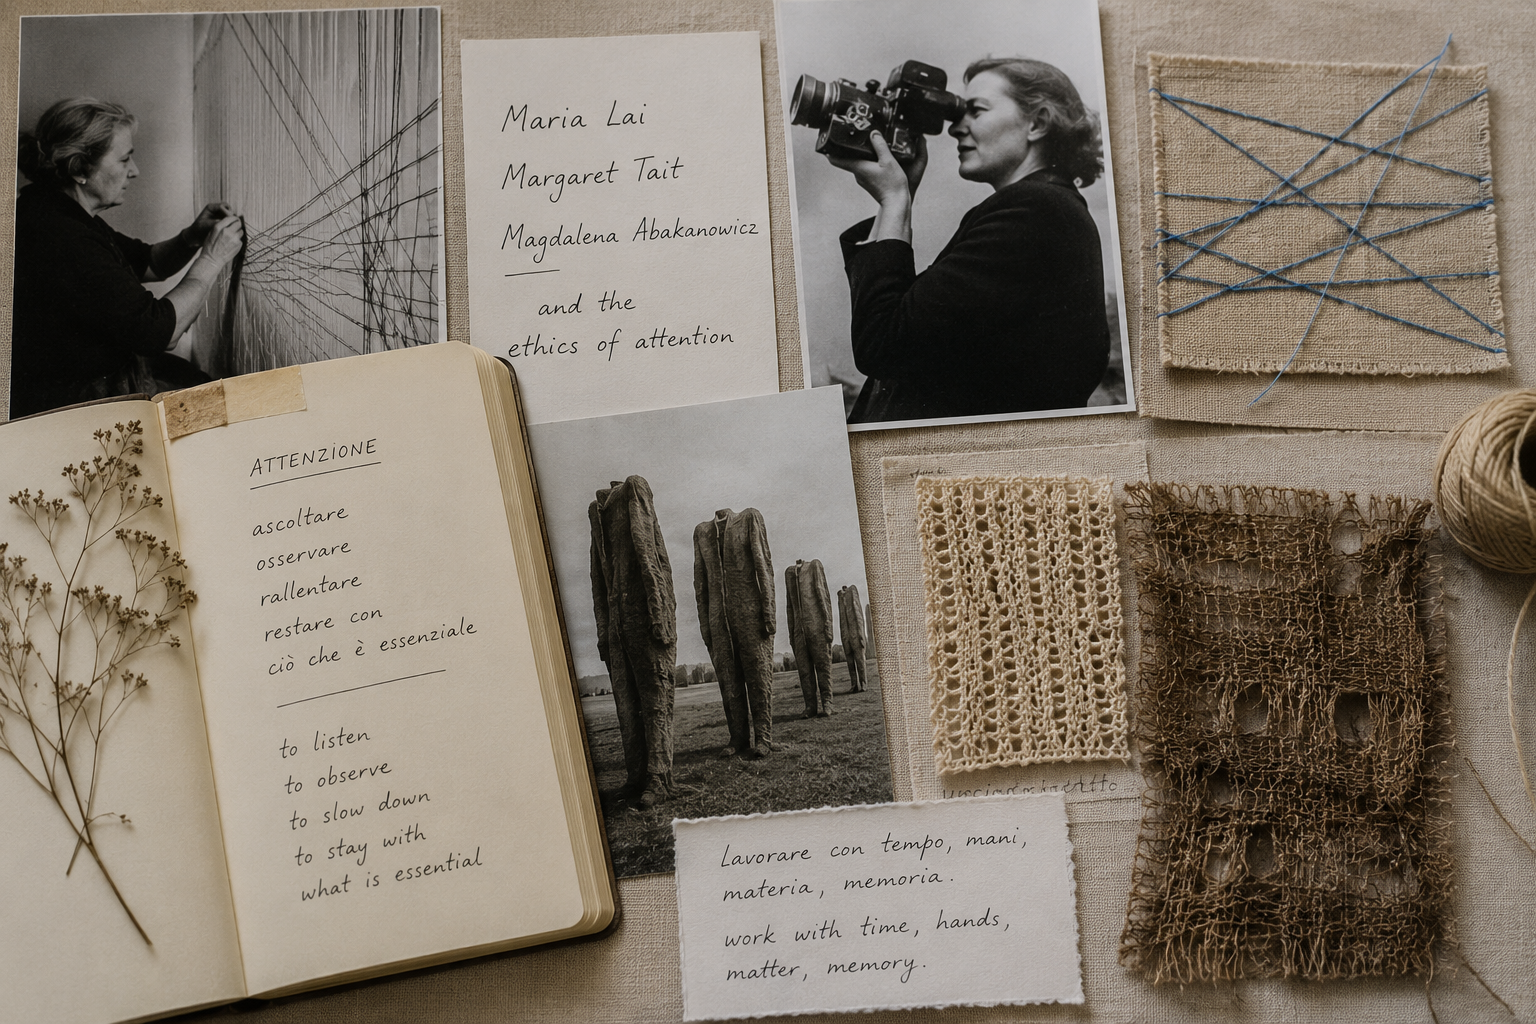 Maria Lai
Margaret Tait
Magdalena Abakanowicz
and the
ethics of attention
ATTENZIONE
ascoltare
osservare
rallentare
restare con
ciò che è essenziale
to listen
to observe
to slow down
to stay with
what is essential
Lavorare con tempo, mani,
materia, memoria.
work with time, hands,
matter, memory.